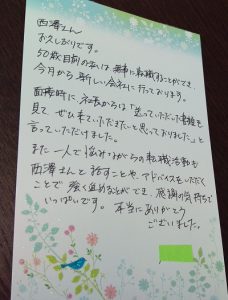 西澤さん
お久しぶりです。
50歳目前の私は無事に転職することができ、
今月から新しい会社に行っております。
面接時に、社長からは「送っていただいた書類を
見て、ぜひ来ていただきたいと思っておりました。」と
言っていただけました。
また一人で悩みながらの転職活動も
西澤さんと話すことや、アドバイスをいただく
ことで強く進めることができ、感謝の気持ちで
いっぱいです。本当にありがとう
ございました。